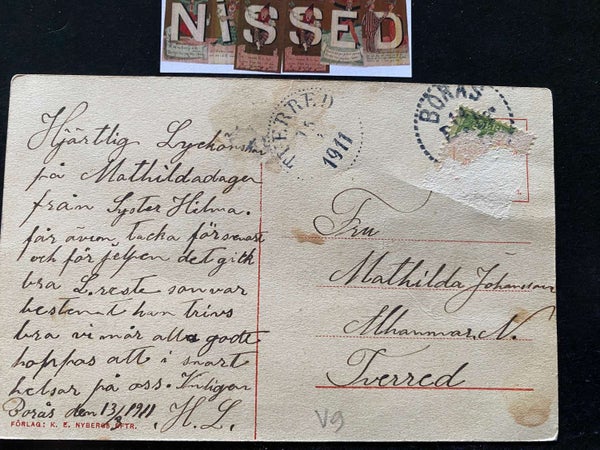 NISSED
TVERRED
15
1911
BORÅS
Hjärtlig Lyckönskan
på Mathildadagen
från Syster Hilma.
får även tacka för senast
och för jelpen det gick
bra L.reste som var
bestemt han trivs
bra vi mår alla godt
hoppas att i snart
helsar på oss.
Borås den 13/3 1911 H. L.
FÖRLAG: K. E. NYBERGS EFTR.
Fru
Mathilda Johansson
N.
Tverred
V9